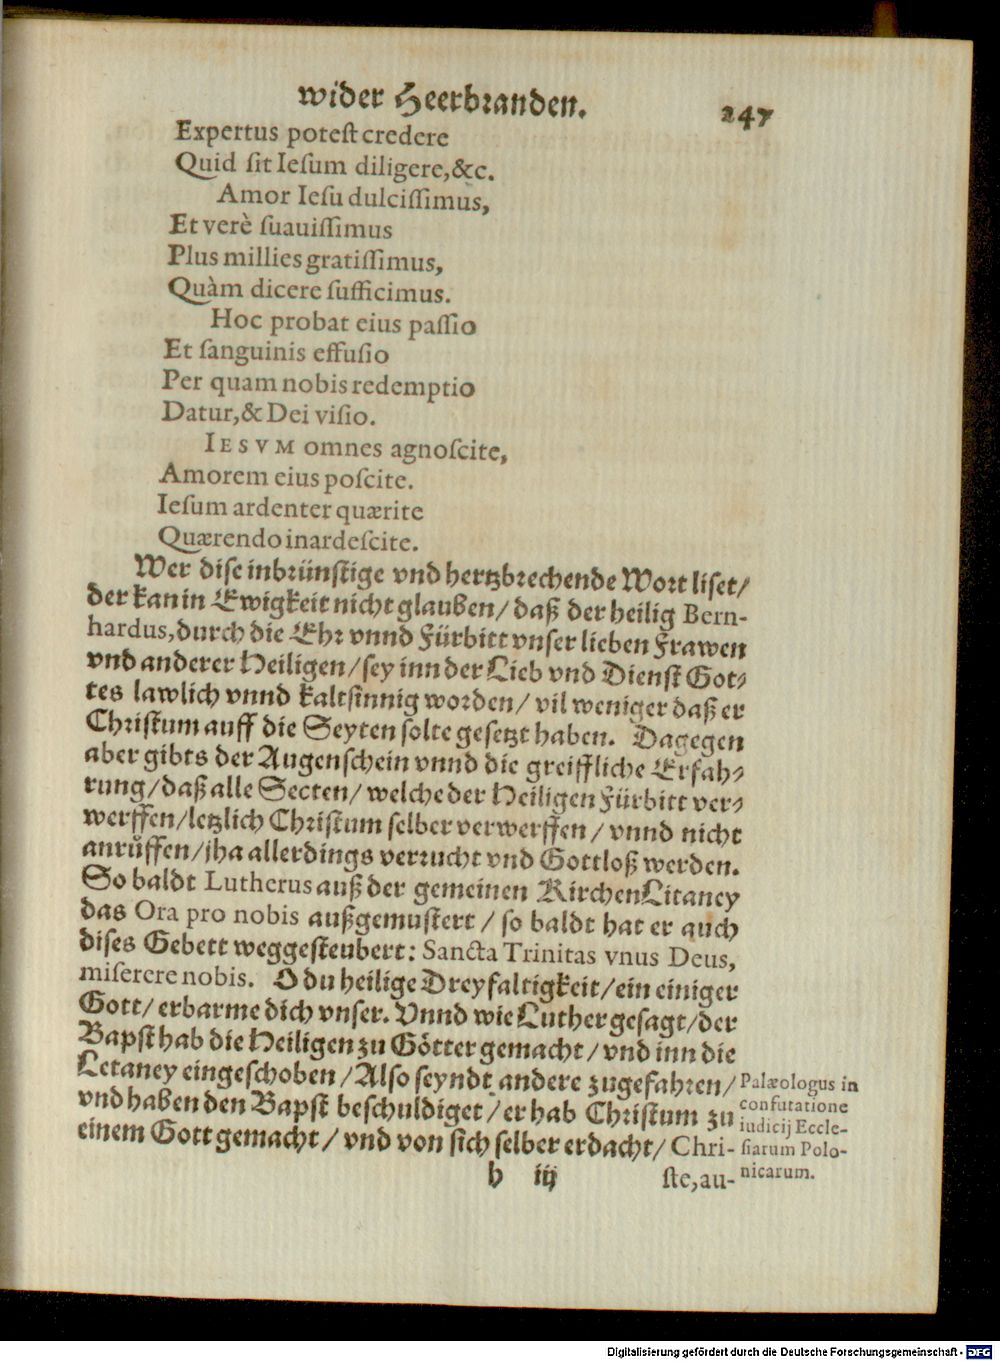 wider Heerbranden. 247
Expertus potest credere
Quid sit Iesum diligere,&c.
Amor Iesu dulcissimus,
Et verè suauissimus
Plus millies gratissimus,
Quàm dicere sufficimus.
Hoc probat eius passio
Et sanguinis effusio
Per quam nobis redemptio
Datur,& Dei visio.
IESVM omnes agnoscite,
Amorem eius poscite.
Iesum ardenter quærite
Quærendo inardescite.
Wer dise inbrünstige vnd hertzbrechende Wort liset/
der kan in Ewigkeit nicht glauben/ daß der heilig Bern-
hardus, durch die Ehr vnnd Fürbitt vnser lieben Frawen
vnd anderer Heiligen/ sey inn der Lieb vnd Dienst Got-
tes lawlich vnnd kaltsinnig worden/ vil weniger daß er
Christum auff die Seyten solte gesetzt haben. Dagegen
aber gibts der Augenschein vnnd die greiffliche Erfah-
rung/ daß alle Secten/ welche der Heiligen Fürbitt ver-
werffen/ letzlich Christum selber verwerffen/ vnnd nicht
anrůffen/ jha allerdings verrucht vnd Gottloß werden.
So baldt Lutherus auß der gemeinen KirchenLitaney
das Ora pro nobis außgemustert/ so baldt hat er auch
dises Gebett weggesteubert: Sancta Trinitas vnus Deus,
miserere nobis. O du heilige Dreyfaltigkeit/ ein einiger
Gott/ erbarme dich vnser. Vnnd wie Luther gesagt/ der
Bapst hab die Heiligen zu Götter gemacht/ vnd inn die
Letaney eingeschoben/ Also seyndt andere zugefahren/
vnd haben den Bapst beschuldiget/ er hab Christum zu
einem Gott gemacht/ vnd von sich selber erdacht/ Chri-
h iij ste, au-
Palæologus in
confutatione
iudicij Eccle-
siarum Polo-
nicarum.
Digitalisierung gefördert durch die Deutsche Forschungsgemeinschaft - DFG